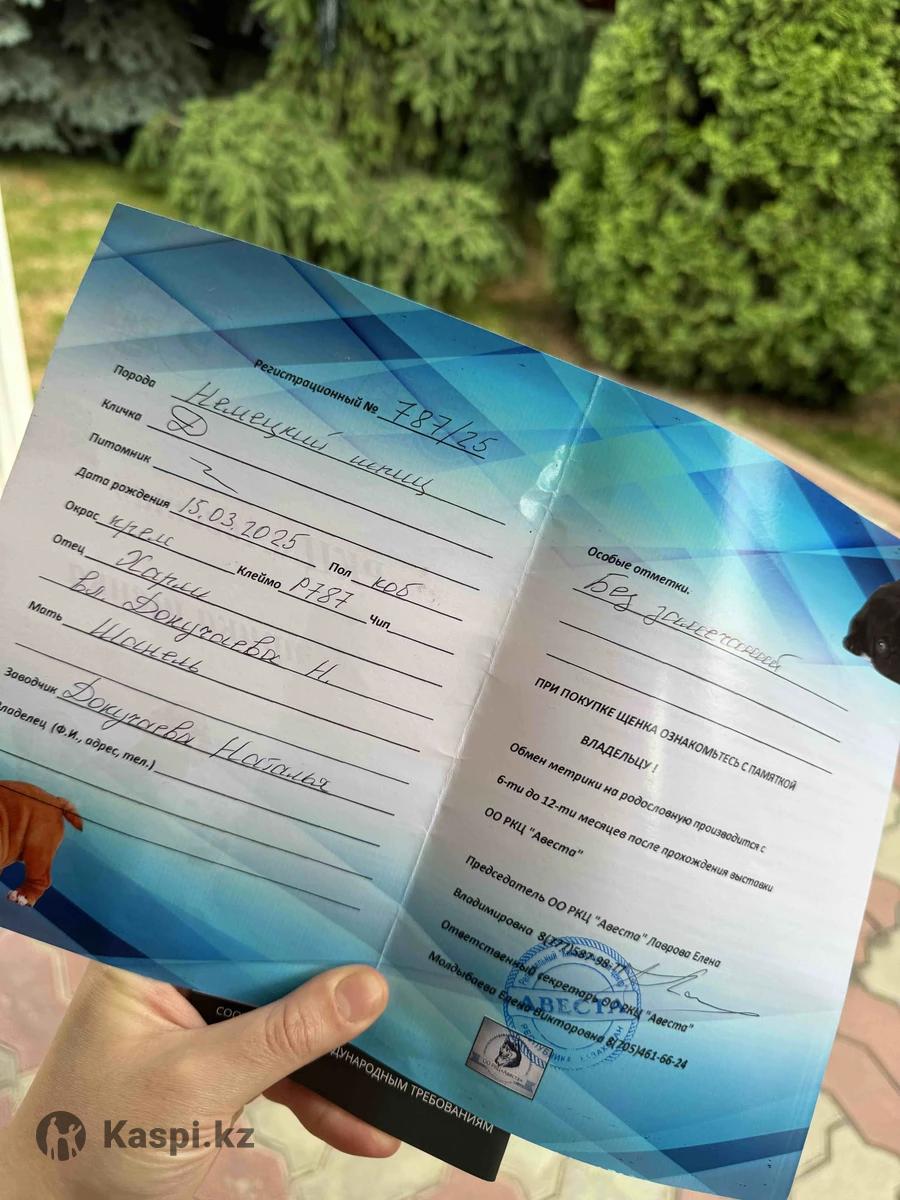 Регистрационный № 787/25
Порода Немецкий шпиц
Кличка Д
Питомник
Дата рождения 15.03.2025
Окрас крем Пол коб
Отец Хариш Клеймо Р787 Чип
вл Докучаева Н.
Мать Шанель
Заводчик Докучаева Наталья
Владелец (Ф.И., адрес, тел.)
Особые отметки.
Без замечаний
ПРИ ПОКУПКЕ ЩЕНКА ОЗНАКОМЬТЕСЬ С ПАМЯТКОЙ
ВЛАДЕЛЬЦУ !
Обмен метрики на родословную производится с
6-ти до 12-ти месяцев после прохождения выставки
ОО РКЦ "Авеста"
Председатель ОО РКЦ "Авеста" Лаврова Елена
Владимировна 8(777)587-98-11
Ответственный секретарь ОО РКЦ "Авеста"
Молдыбаева Елена Викторовна 8(705)461-66-24
АВЕСТА
ОО РКЦ «Авеста»
МЕЖДУНАРОДНЫМ ТРЕБОВАНИЯМ
Kaspi.kz